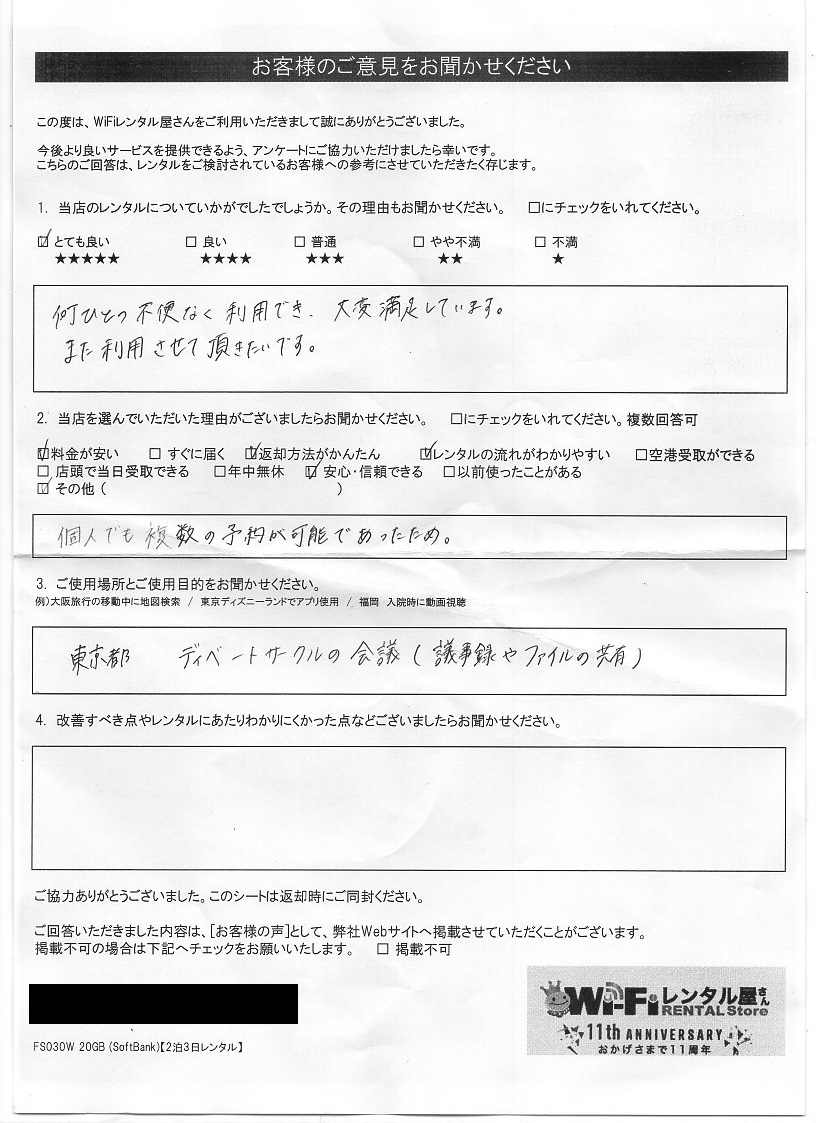 お客様のご意見をお聞かせください
この度は、WiFiレンタル屋さんをご利用いただきまして誠にありがとうございました。
今後より良いサービスを提供できるよう、アンケートにご協力いただけましたら幸いです。
こちらのご回答は、レンタルをご検討されているお客様への参考にさせていただきたく存じます。
1. 当店のレンタルについていかがでしたでしょうか。その理由もお聞かせください。 □にチェックをいれてください。
☑ とても良い □ 良い □ 普通 □ やや不満 □ 不満
★★★★★ ★★★★ ★★★ ★★ ★
何ひとつ不便なく利用でき、大変満足しています。
また利用させて頂きたいです。
2. 当店を選んでいただいた理由がございましたらお聞かせください。 □にチェックをいれてください。複数回答可
☑料金が安い □ すぐに届く ☑返却方法がかんたん ☑レンタルの流れがわかりやすい □空港受取ができる
□ 店頭で当日受取できる □年中無休 ☑ 安心・信頼できる □以前使ったことがある
☑ その他 ( )
個人でも複数の予約が可能であったため。
3. ご使用場所とご使用目的をお聞かせください。
例)大阪旅行の移動中に地図検索 / 東京ディズニーランドでアプリ使用 / 福岡 入院時に動画視聴
東京都 ディベートサークルの会議(議事録やファイルの共有)
4. 改善すべき点やレンタルにあたりわかりにくかった点などございましたらお聞かせください。
ご協力ありがとうございました。このシートは返却時にご同封ください。
ご回答いただきました内容は、[お客様の声]として、弊社Webサイトへ掲載させていただくことがございます。
掲載不可の場合は下記へチェックをお願いいたします。 □ 掲載不可
Wi-Fiレンタル屋さん
RENTAL Store
11th ANNIVERSARY
おかげさまで11周年
FS030W 20GB (SoftBank)【2泊3日レンタル】